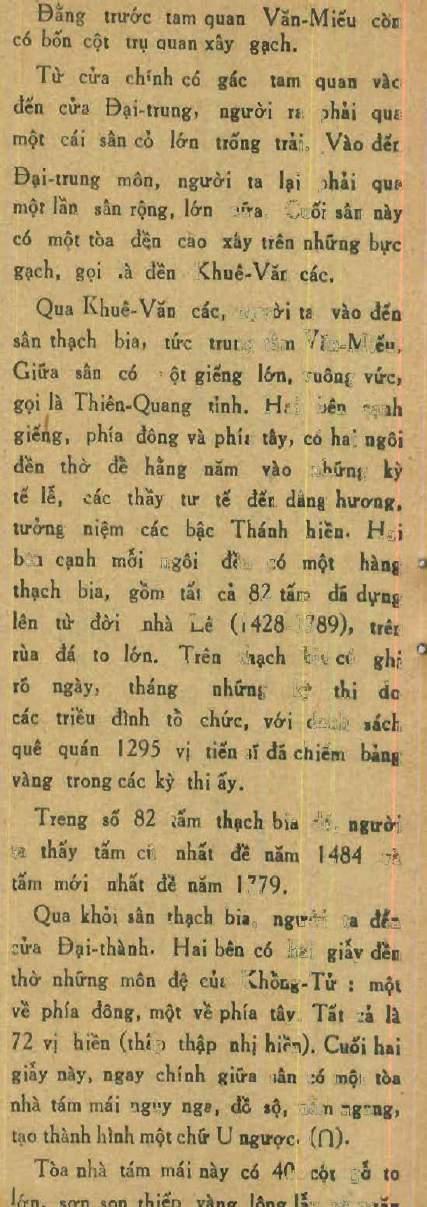 Đằng trước tam quan Văn-Miếu còn
có bốn cột trụ quan xây gạch.
Từ cửa chính có gác tam quan vào
đến cửa Đại-trung, người ta phải qua
một cái sân cỏ lớn trống trải. Vào đến
Đại-trung môn, người ta lại phải qua
một lần sân rộng, lớn nữa. Cuối sân này
có một tòa đền cao xây trên những bực
gạch, gọi là đền Khuê-Văn các.
Qua Khuê-Văn các, người ta vào đến
sân thạch bia, tức trung tâm Văn-Miếu.
Giữa sân có một giếng lớn, vuông vức,
gọi là Thiên-Quang tỉnh. Hai bên cạnh
giếng, phía đông và phía tây, có hai ngôi
đền thờ để hằng năm vào những kỳ
tế lễ, các thầy tư tế đến dâng hương,
tưởng niệm các bậc Thánh hiền. Hai
bên cạnh mỗi ngôi đền có một hàng
thạch bia, gồm tất cả 82 tấm đã dựng
lên từ đời nhà Lê (1428 1789), trên
rùa đá to lớn. Trên thạch bia có ghi
rõ ngày, tháng những kỳ thi do
các triều đình tổ chức, với danh sách
quê quán 1295 vị tiến sĩ đã chiếm bảng
vàng trong các kỳ thi ấy.
Treng số 82 tấm thạch bia đó, người
ta thấy tấm cũ nhất đề năm 1484 và
tấm mới nhất đề năm 1779.
Qua khỏi sân thạch bia, người ta đến
cửa Đại-thành. Hai bên có hai giẫy đền
thờ những môn đệ của Khổng-Tử : một
về phía đông, một về phía tây. Tất cả là
72 vị hiền (thấp thập nhị hiền). Cuối hai
giẫy này, ngay chính giữa sân có một tòa
nhà tám mái nguy nga, đồ sộ, nằm ngang,
tạo thành hình một chữ U ngược. (∩).
Tòa nhà tám mái này có 40 cột gỗ to
lớn, sơn son thiếp vàng lộng lẫy